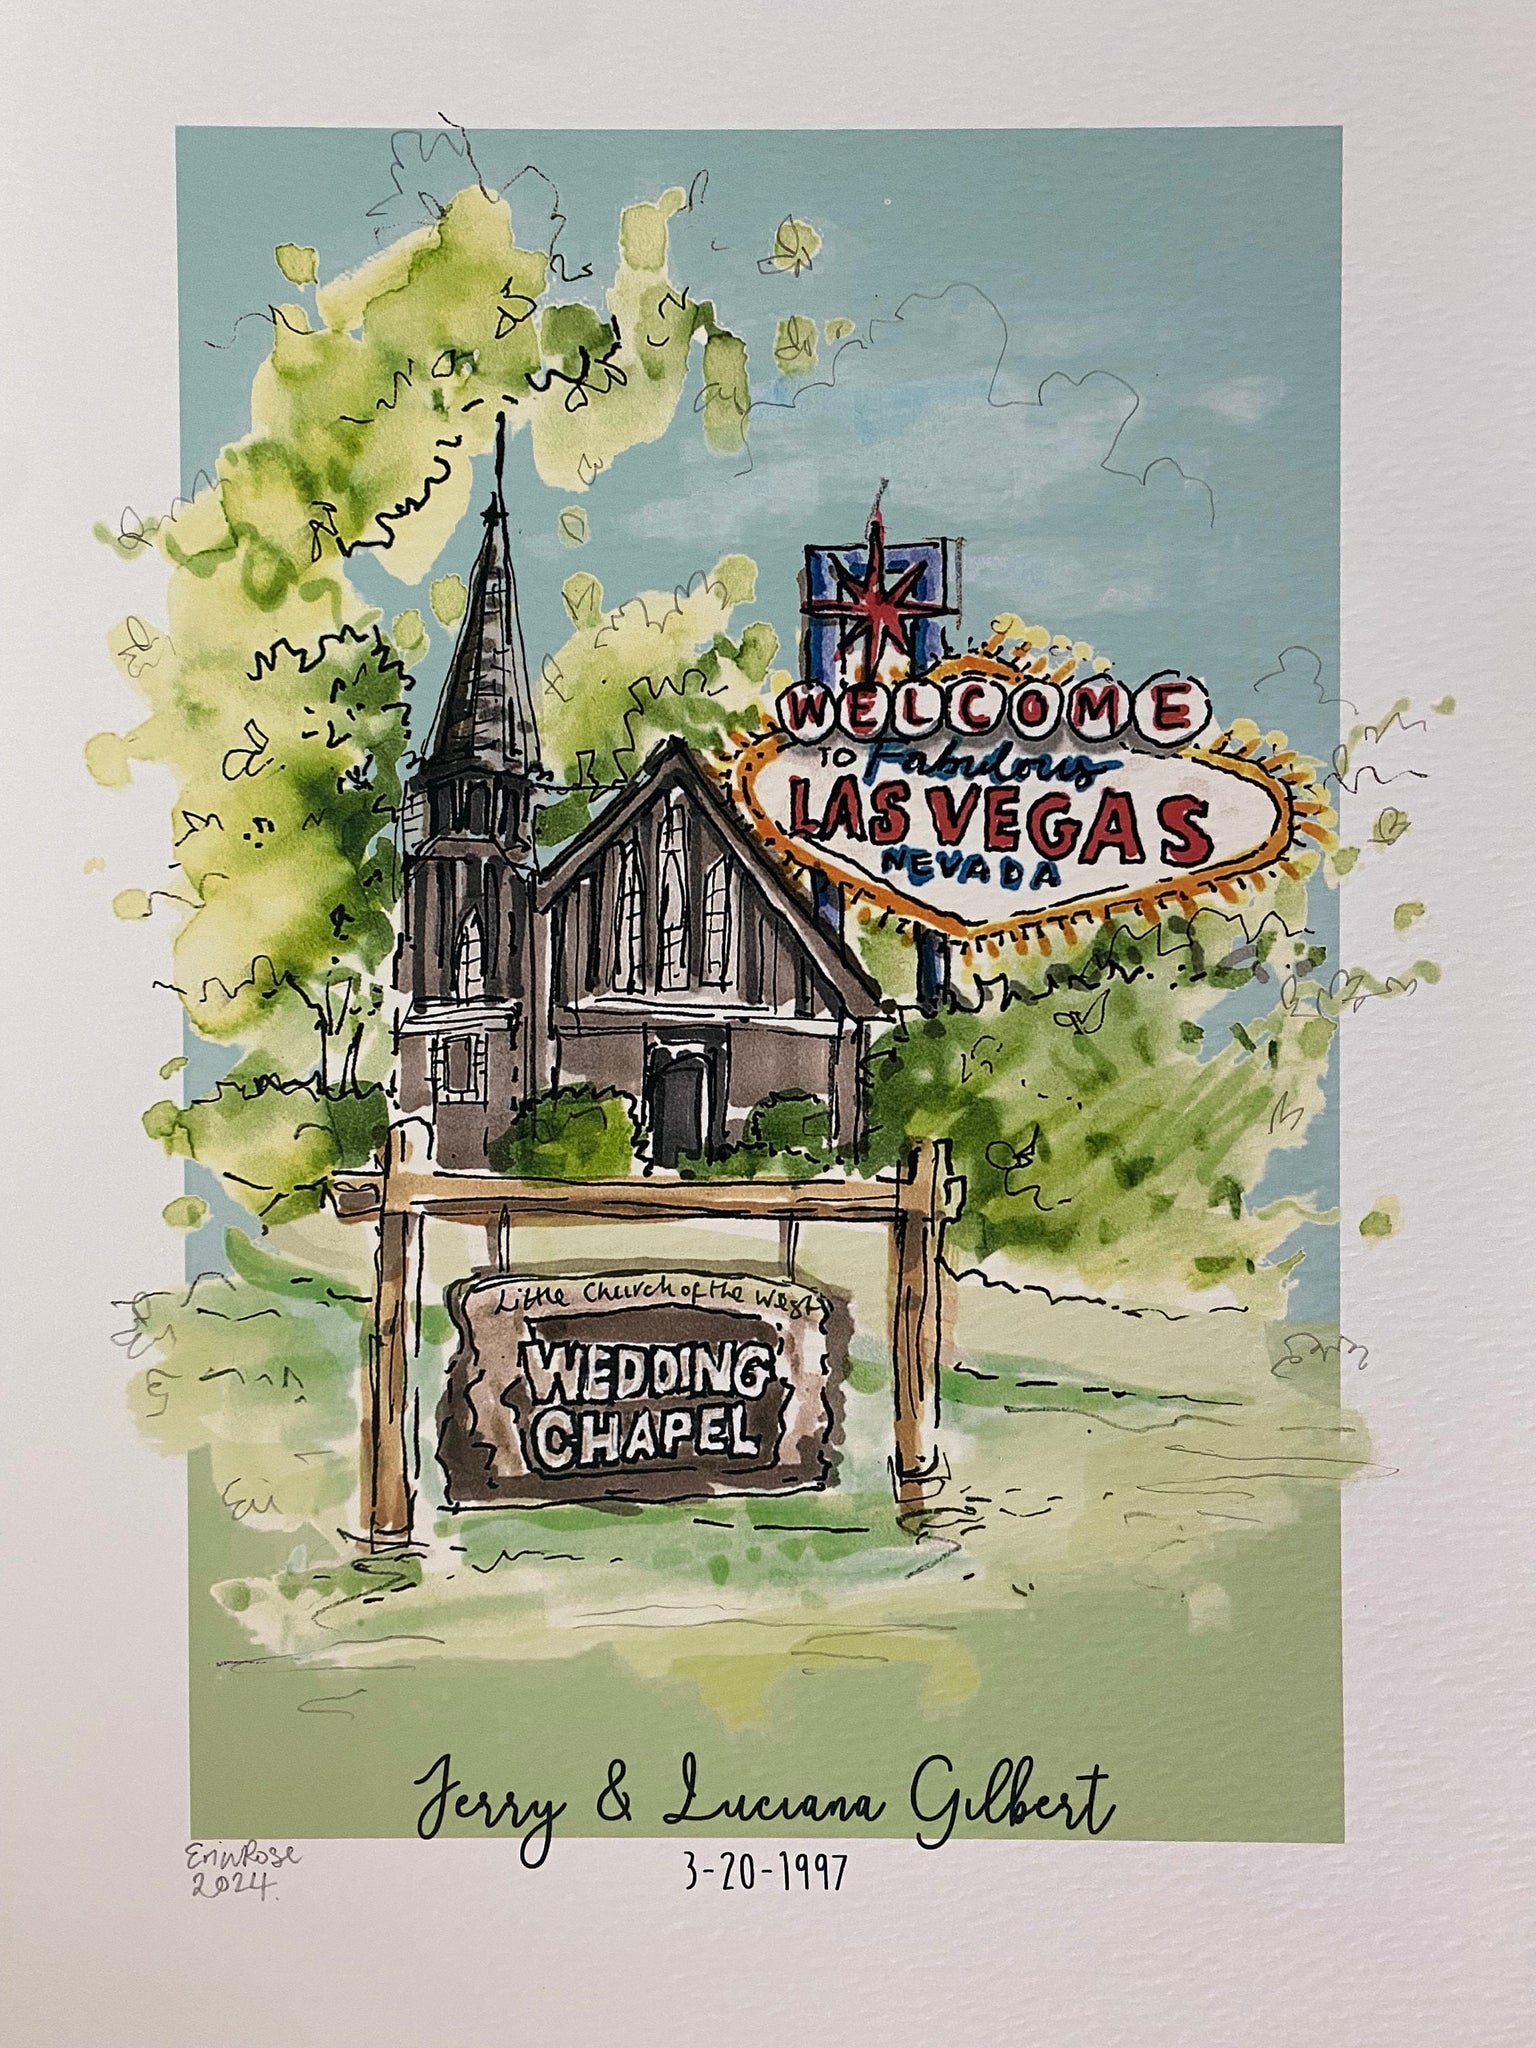 WELCOME
TO Fabulous
LAS VEGAS
NEVADA
Little Church of the West
WEDDING
CHAPEL
Jerry & Luciana Gilbert
3-20-1997
Erin Rose
2024.